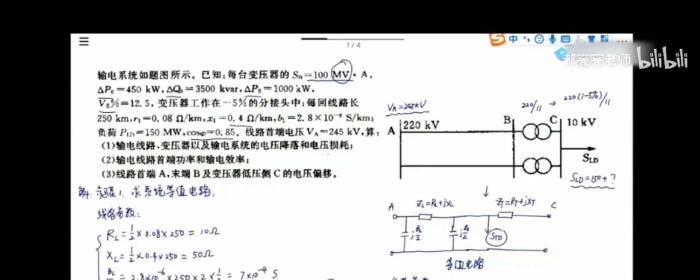 1 / 4
bilibili
输电系统如题图所示。已知:每台变压器的 S_N=100 MV·A,
ΔP₀=450 kW, ΔQ₀=3500 kvar, ΔP_S=1000 kW,
V_S%=12.5, 变压器工作在-5%的分接头中;每回线路长
250 km, r₁=0.08 Ω/km, x₁=0.4 Ω/km, b₁=2.8×10⁻⁶ S/km;
负荷 P_LD=150 MW, cosφ=0.85。线路首端电压 V_A=245 kV, 算:
(1)输电线路、变压器以及输电系统的电压降落和电压损耗;
(2)输电线路首端功率和输电效率;
(3)线路首端 A,末端 B 及变压器低压侧 C 的电压偏移。
V_A=245kV
220/11 → 220(1-5%)/11
A 220 kV B C 10 kV
S_LD
S_LD=150+?
求系统等值电路,
线路参数:
R_L=½×0.08×250=10Ω
X_L=½×0.4×250=50Ω
2.8×10⁻⁶×250×2×½=7×10⁻⁴ S
A Z_L=R_L+jX_L Z_T=R_T+jX_T C
等值电路